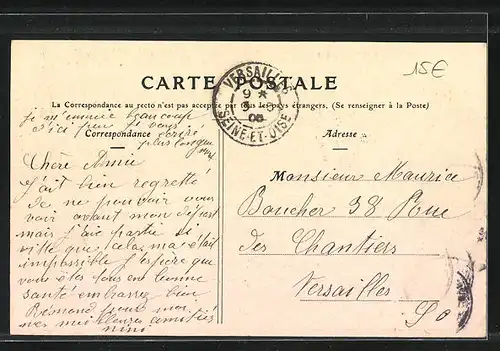 15€
CARTE POSTALE
VERSAILLES
9 *
8 - 9
08
SEINE-ET-OISE
La Correspondance au recto n'est pas acceptée par tous les pays étrangers, (Se renseigner à la Poste)
je m'ennuie beaucoup
d'ici peu je vous
écrirai
plus longuement
Correspondance
Adresse
Chère Amie
J'ait bien regretté
de ne pouvoir vous
voir avant mon départ
mais j'aie partie si
vitte que cela ma était
impossible j'espère que
vous êtes tous en bonne
santé embrassez bien
Rémond pour moi
mes meilleures amitiés
nini
Monsieur Maurice
Boucher 38 Rue
des Chantiers
Versailles
S O